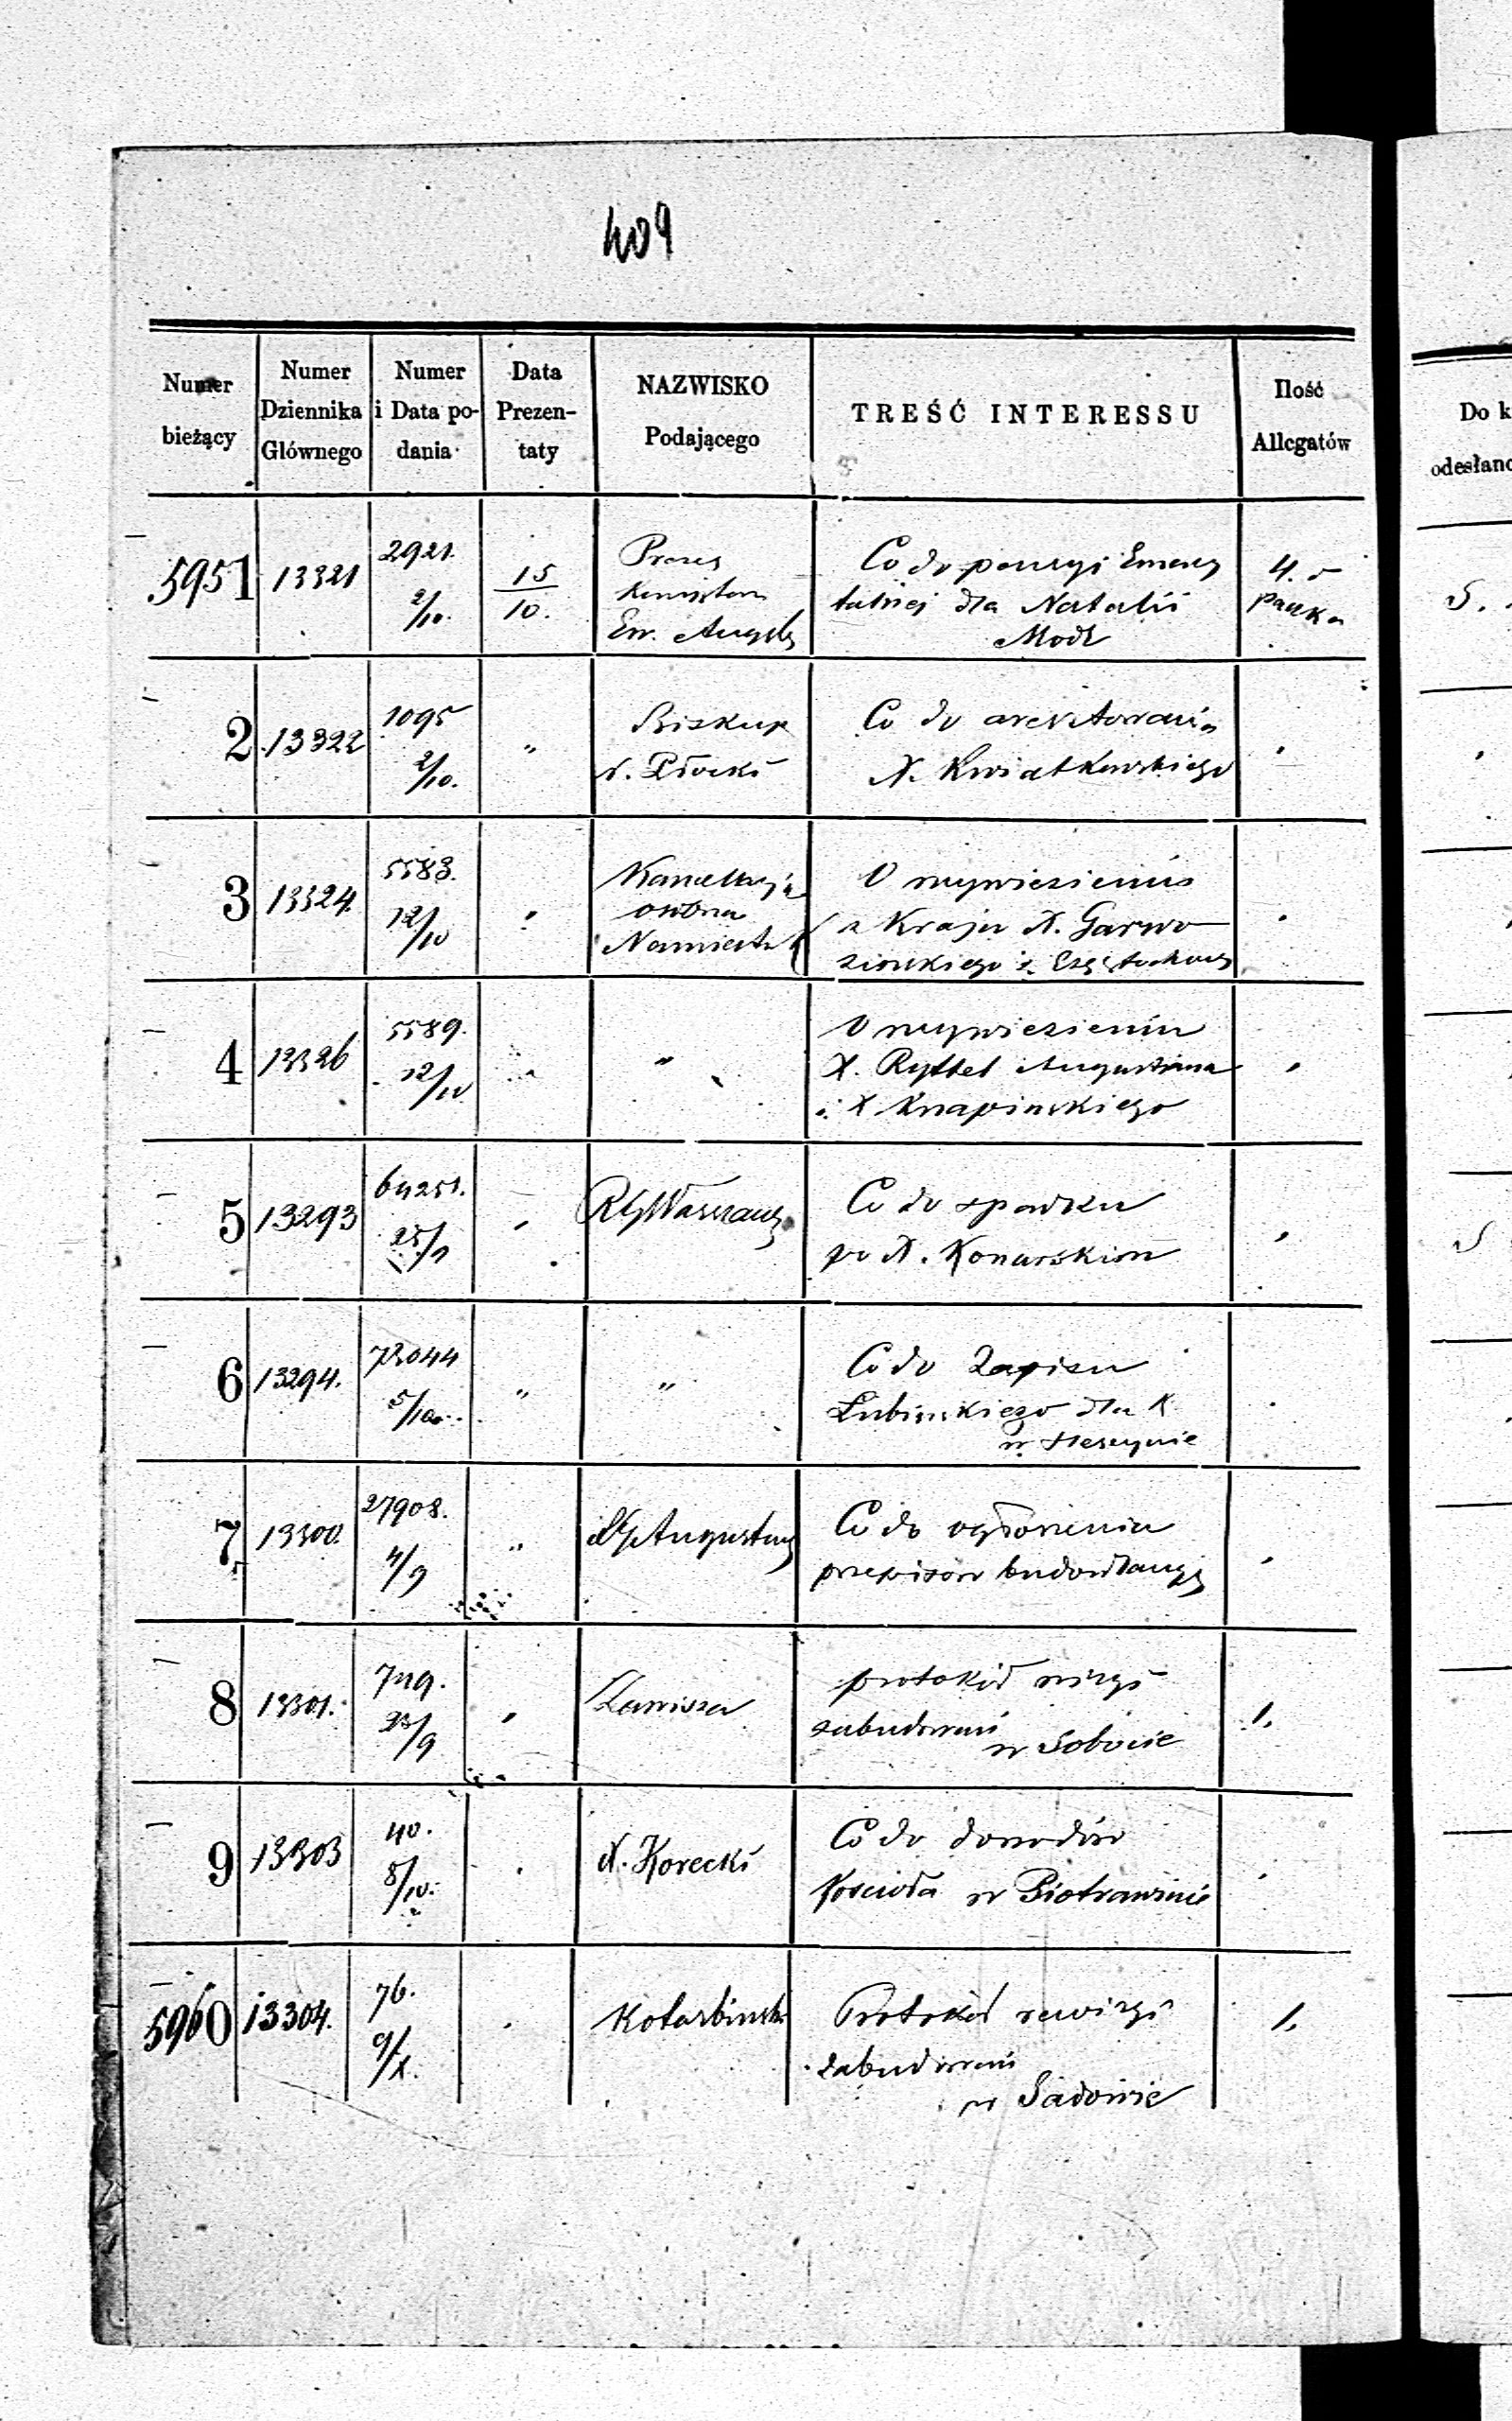 409
Numer bieżący | Numer Dziennika Głównego | Numer i Data podania | Data Prezentaty | NAZWISKO Podającego | TREŚĆ INTERESSU | Ilość Allegatów
Do k
odesłano
5951 | 13321 | 2921. 2/10. | 15/10. | Prezes Ew. Augsb | Co do pensyi Emery
talnej dla Natalii
Modl | 4. paczka
S.
2 | 13322 | 1095 2/10. | " | Biskup d. Płocki | Co do aresztowania
X. Kwiatkowskiego
3 | 13324. | 5583. 12/10 | " | Kancellaryja osobna Namiestn | O wywiezieniu
z Kraju X. Garwo
zińskiego z Częstochowy
4 | 13326 | 5589. 12/10 | " | " | O wywiezieniu
X. Ryttel Augustiana
i X Knapinskiego
5 | 13293 | 64251. 25/9 | " | RGWarszaws | Co do spadku
po X. Konarskim
S
6 | 13294. | 73044 5/10 | " | " | Co do Zapisu
Lubinskiego dla K
w
7 | 13300. | 27908. 4/9 | " | RGAugustows | Co do ogłoszenia
przepisów budowlanych
8 | 13301. | 749. 23/9 | " | Zawisza | protokół rewizyi
zabudowań
w Sobocie | 1.
9 | 13303 | 40. 8/10. | " | X. Korecki | Co do dowodów
Kościoła w Piotrawinie
5960 | 13304. | 76. 9/X. | " | Kotarbinski | Protokół rewizyi
zabudowań
w Sadowie | 1.